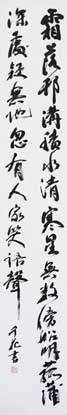 霜落邗溝積水清寒星無數傍船明菰蒲
深處疑無地忽有人家笑語聲